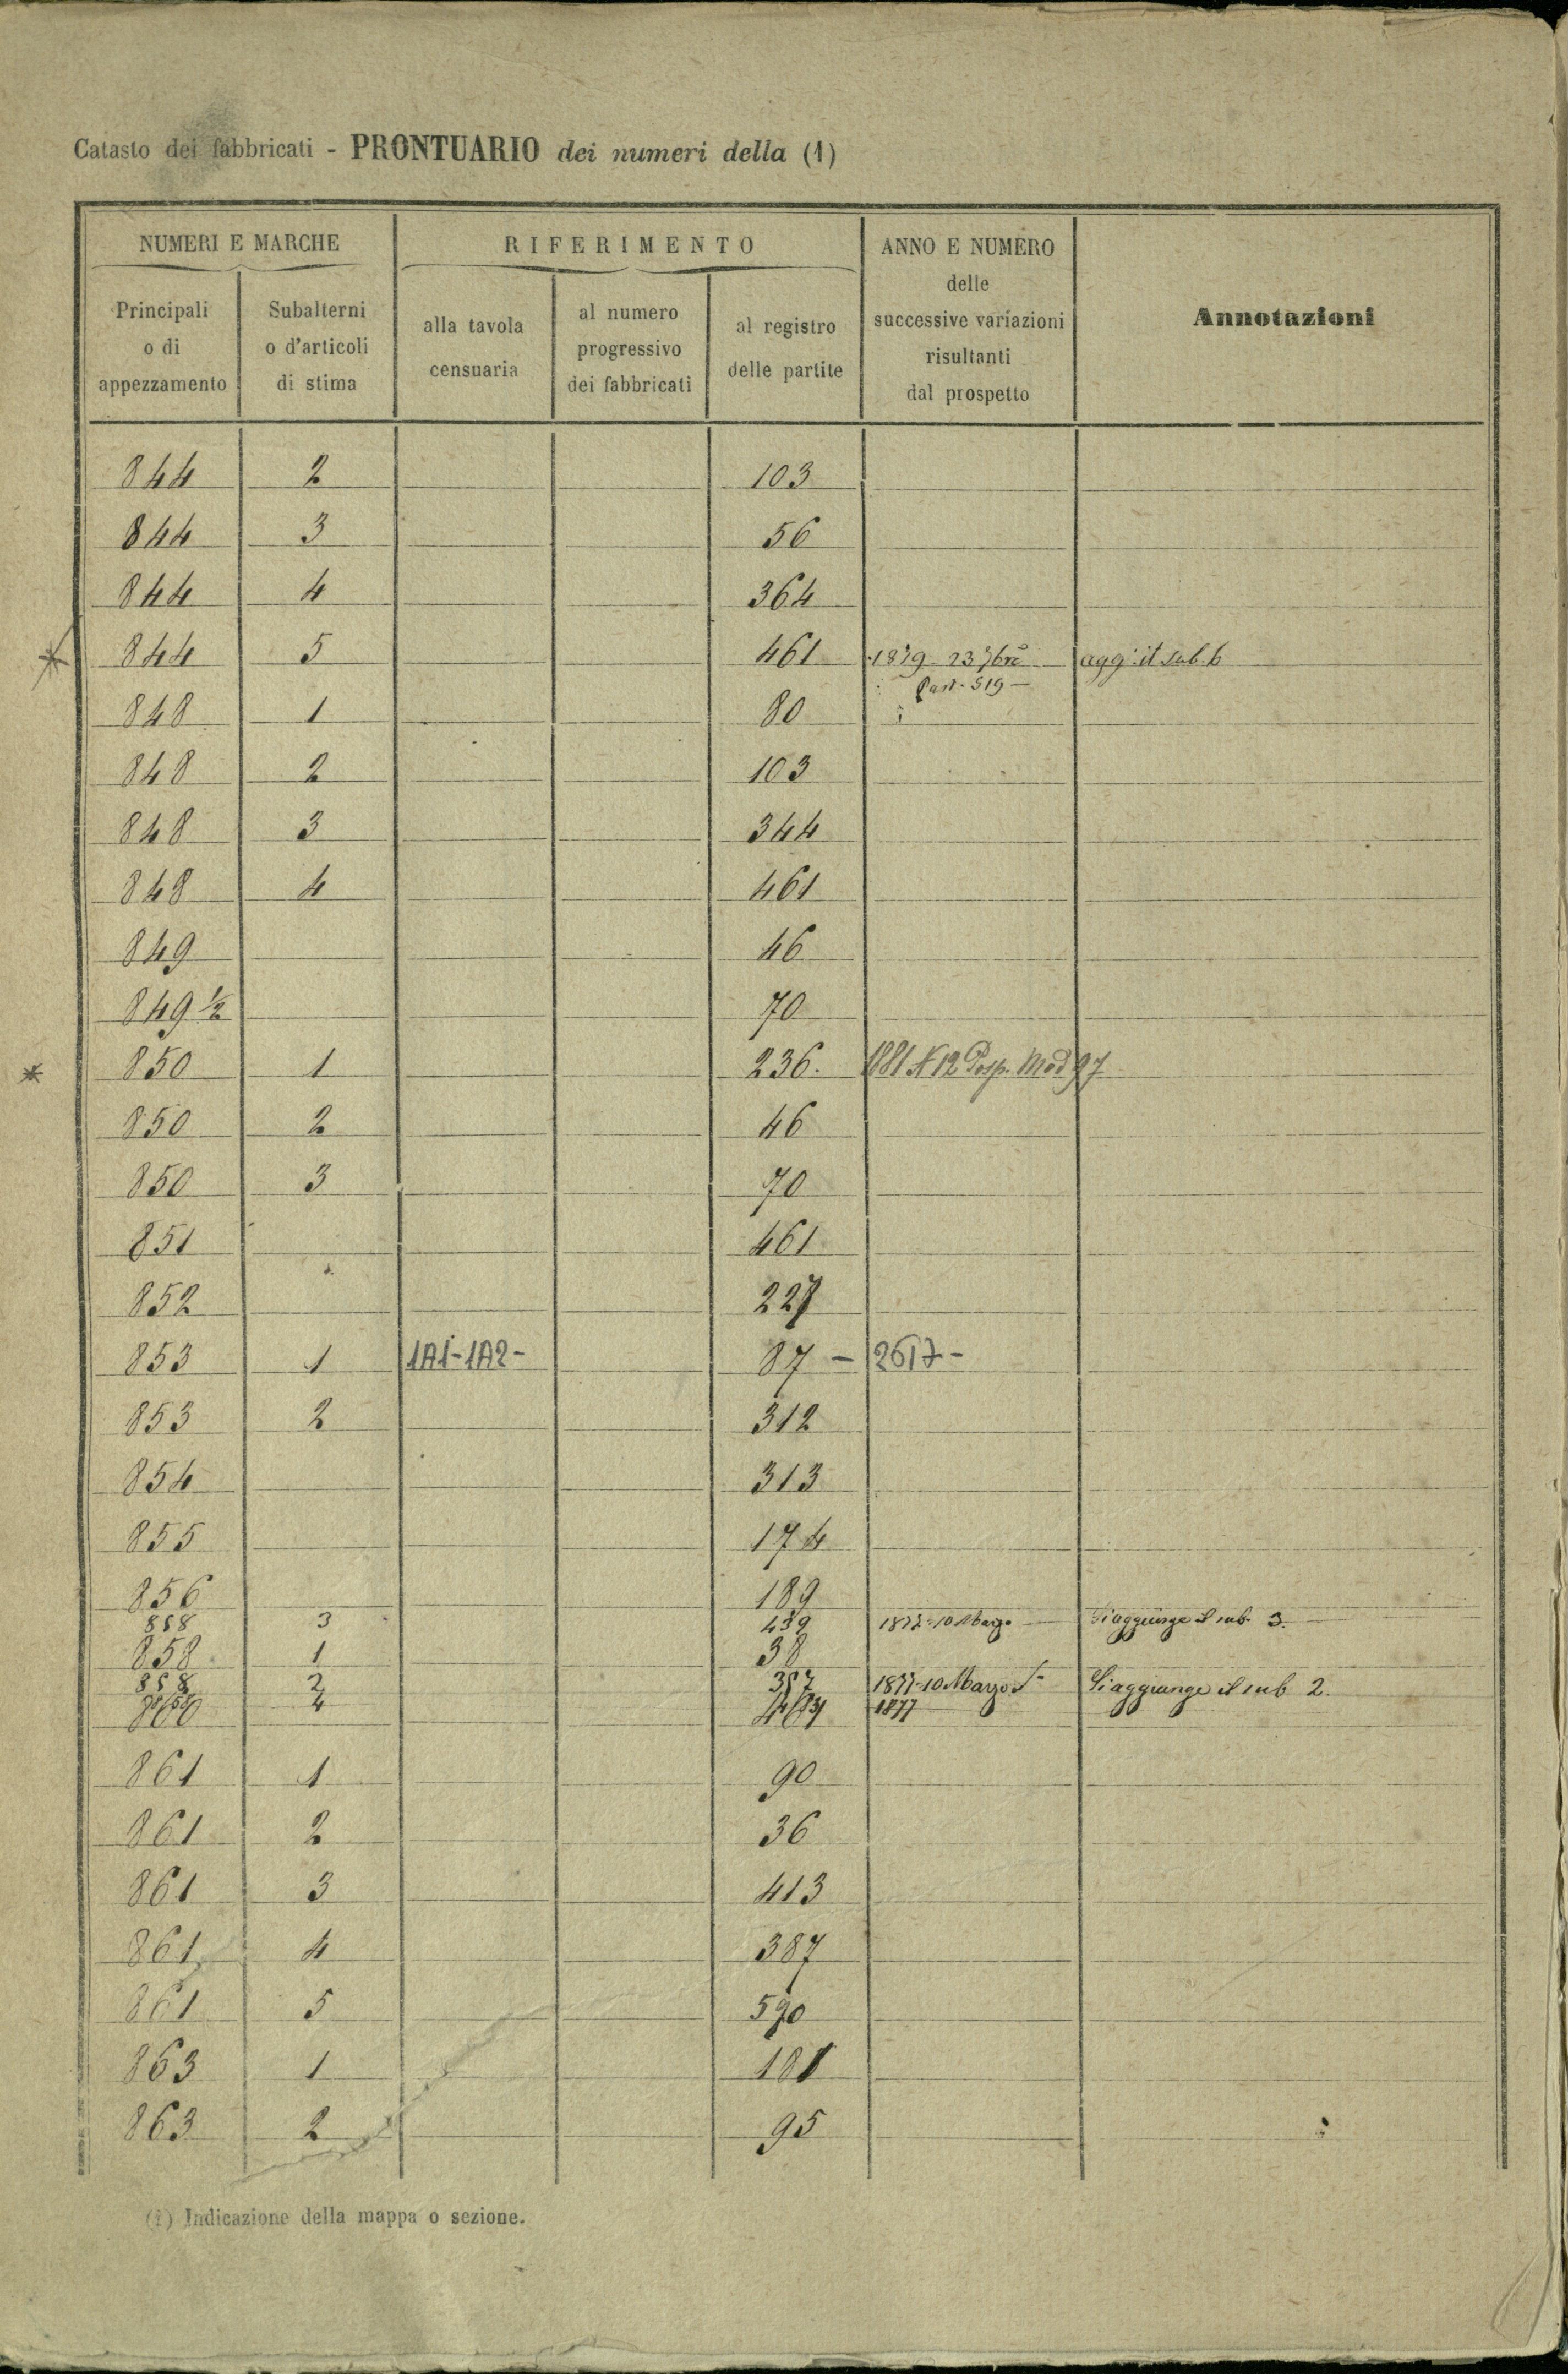 Catasto dei fabbricati - PRONTUARIO dei numeri della (1)
NUMERI E MARCHE
RIFERIMENTO
ANNO E NUMERO
delle
successive variazioni
risultanti
dal prospetto
Annotazioni
Principali
o di
appezzamento
Subalterni
o d'articoli
di stima
alla tavola
censuaria
al numero
progressivo
dei fabbricati
al registro
delle partite
844 2 103
844 3 56
844 4 364
* 844 5 461 1879 23 7bre agg: il sub. 6
Part. 519 —
848 1 80
848 2 103
848 3 344
848 4 461
849 46
849 1/2 70
* 850 1 236. 1881 N 12 Mod 97
850 2 46
850 3 70
851 461
852 227
853 1 1A1-1A2- 87 - 2617-
853 2 312
854 313
855 174
856 189
858 3 439 1877-10 Marzo Si aggiunge il sub. 3.
858 1 38
858 2 357 1877-10 Marzo Si aggiunge il sub 2.
4 1877
861 1 90
861 2 36
861 3 413
861 4 387
861 5 590
863 1 181
863 2 95
(1) Indicazione della mappa o sezione.